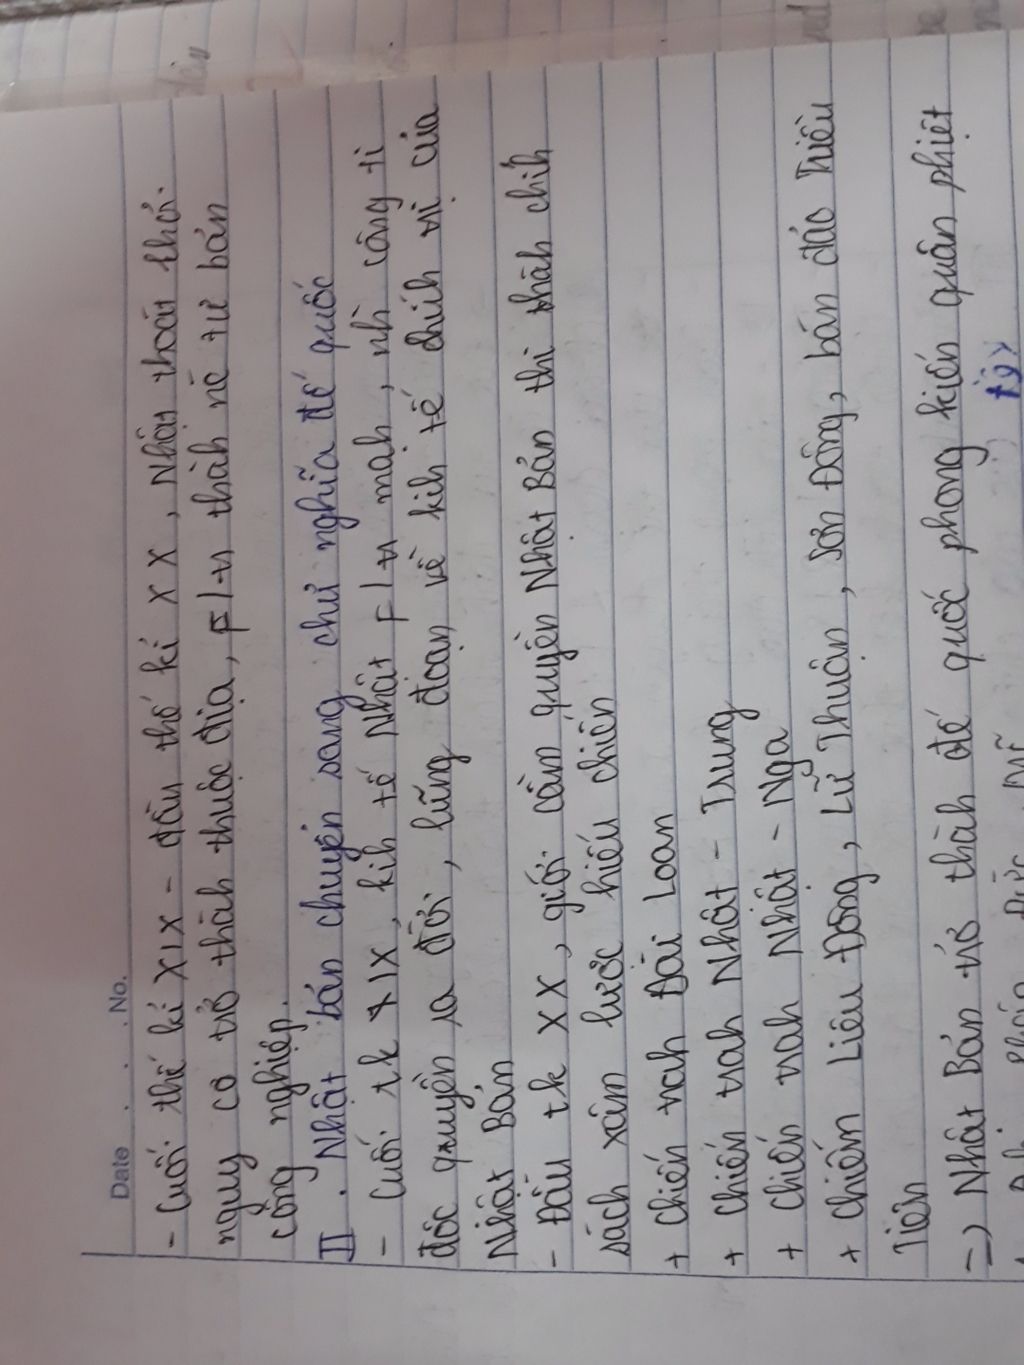 Date . . . No.
- Cuối thế kỉ XIX - đầu thế kỉ XX, Nhật thoát khỏi
nguy cơ trở thành thuộc địa, ptr thành nc tư bản
công nghiệp.
II. Nhật bản chuyển sang chủ nghĩa đế quốc
- Cuối tk XIX, kih tế Nhật ptr mạh, nh` công ti
độc quyền ra đời, lũng đoạn về kih tế chíh trị của
Nhật Bản
- Đầu tk XX, giới cầm quyền Nhật Bản thi thàh chíh
sách xâm lược hiếu chiến
+ chiến trah Đài Loan
+ chiến trah Nhật - Trung
+ chiến trah Nhật - Nga
+ chiếm Liêu Đông, Lữ Thuận, Sơn Đông, bán đảo Triều
Tiên
=> Nhật Bản trở thàh đế quốc phong kiến quân phiệt